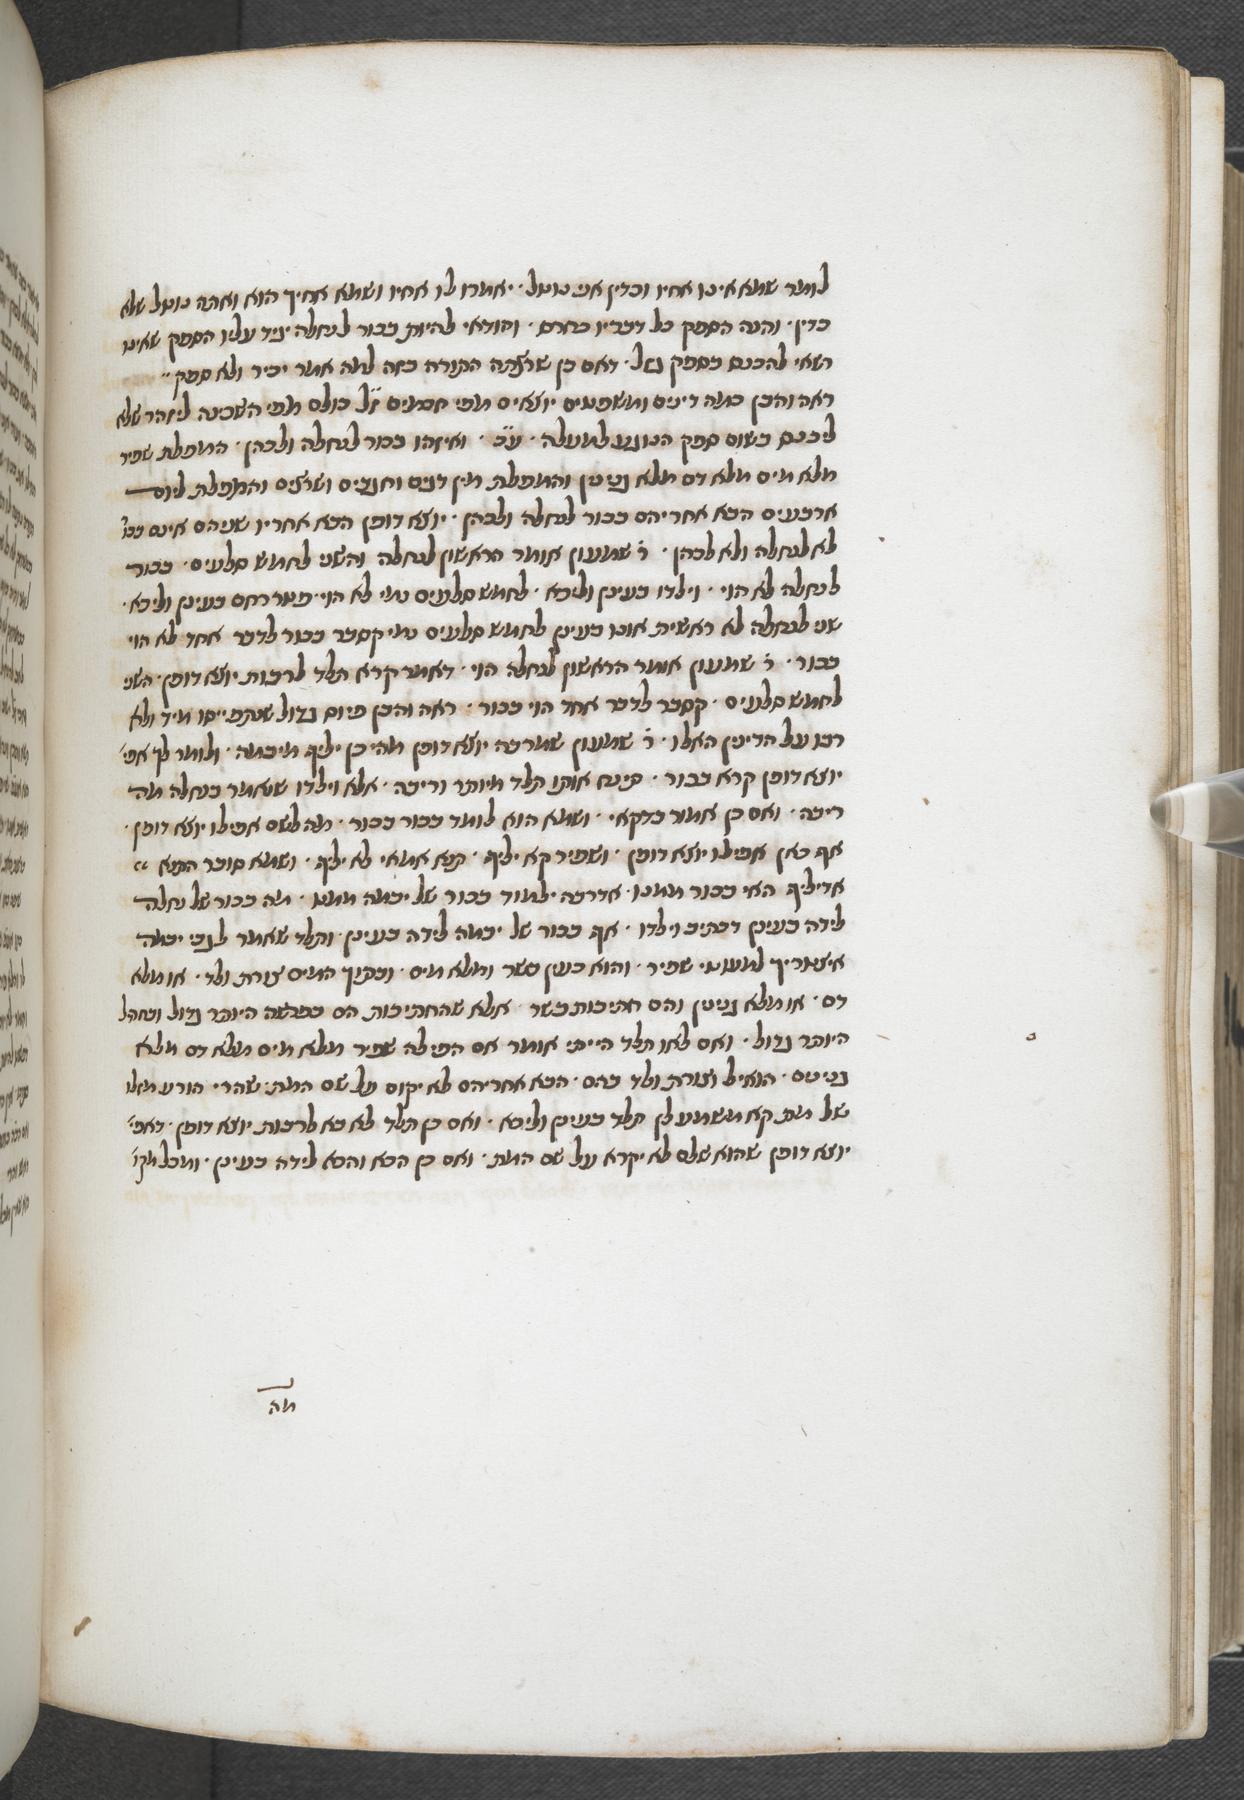 לומר שמא אינו אחיו ובדין אני נוטל · יאמרו לו אחיו ושמא אחיך הוא ואתה נוטל שלא
בדין · והנה הספק כל דבריו בחרם · והודאי להיות בכור לנחלה יגיד עליו הספק שאינו
רשאי להכנס בספק גזל · דאם כן שרצתה התורה בזה למה אמר יכיר ולא ספק
ראה והבן כמה דינים ומשפטים יוצאים מפי חכמים ז״ל כולם מפי השכינה ליזהר שלא
ליכנס בשום ספק הנוגע למעלה · ע״כ · ואיזהו בכור לנחלה ולכהן · המפלת שפיר
מלא מים מלא דם מלא גנינין והמפלת מין דגים וחגבים ושרצים והמפלת ליום
ארבעים הבא אחריהם בכור לנחלה ולכהן · יוצא דופן הבא אחריו שניהם אינם בכו׳
לא לנחלה ולא לכהן · ר׳ שמעון אומר הראשון לנחלה והשני לחמש סלעים · בכור
לנחלה לא הוי · וילדו בעינן וליכא · לחמש סלעים נמי לא הוי · פטר רחם בעינן וליכא ·
שני לנחלה לא ראשית אונו בעינן לחמש סלעים נמי קסבר בכור לדבר אחד לא הוי
בכור · ר׳ שמעון אומר הראשון לנחלה הוי · דאמר קרא תלד לרבות יוצא דופן · השני
לחמש סלעים · קסבר לדבר אחד הוי בכור · ראה והבן פיוס גדול שנתפייסו מיד ולא
רבו על הדינין האלו · ר׳ שמעון שמרבה יוצא דופן מהיכן יליף מיבמה · ולומר לך אפי׳
יוצא דופן קרא בכור · תינח אותו תלד מיותר וריבה · אלא וילדו שנאמר בנחלה מה
ריבה · ואם כן אמור בדקאי · ושמא הוא לומד בכור בכור · מה להם אפילו יוצא דופן ·
אף כאן אפילו יוצא דופן · ושפיר קא יליף · תנא אמאי לא יליף · ושמא סובר התנא
אדיליף האי בכור ממנו · אדרבה ילמוד בכור של יבמה ממנו · מה בכור של נחלה
לידה בעינן דכתיב וילדו · אף בכור של יבמה לידה בעינן · ותלד שאמר לגבי יבמה
איצטריך למעוטי שפיר · והוא כעין בשר ומלא מים · ובתוך המים צורת ולד · או מלא
דם · או מלא גנינין והם חתיכות בשר · אלא שהחתיכות הם בפרשה היותר גדול ובחבל
היותר גדול · ואם לאו תלד הייתי אומר אם הפילה שפיר מלא מים מלא דם מלא
גנינים · הואיל וצורת ולד בהם · הבא אחריהם לא יקום על שם המת · שהרי הורע מזלו
של מת קא משמע לן תלד בעינן וליכא · ואם כן תלד לא בא לרבות יוצא דופן · דאפי׳
יוצא דופן שהוא שלם לא יקרא על שם המת · ואם כן הכא והכא לידה בעינן · ומכל מקו׳
מה